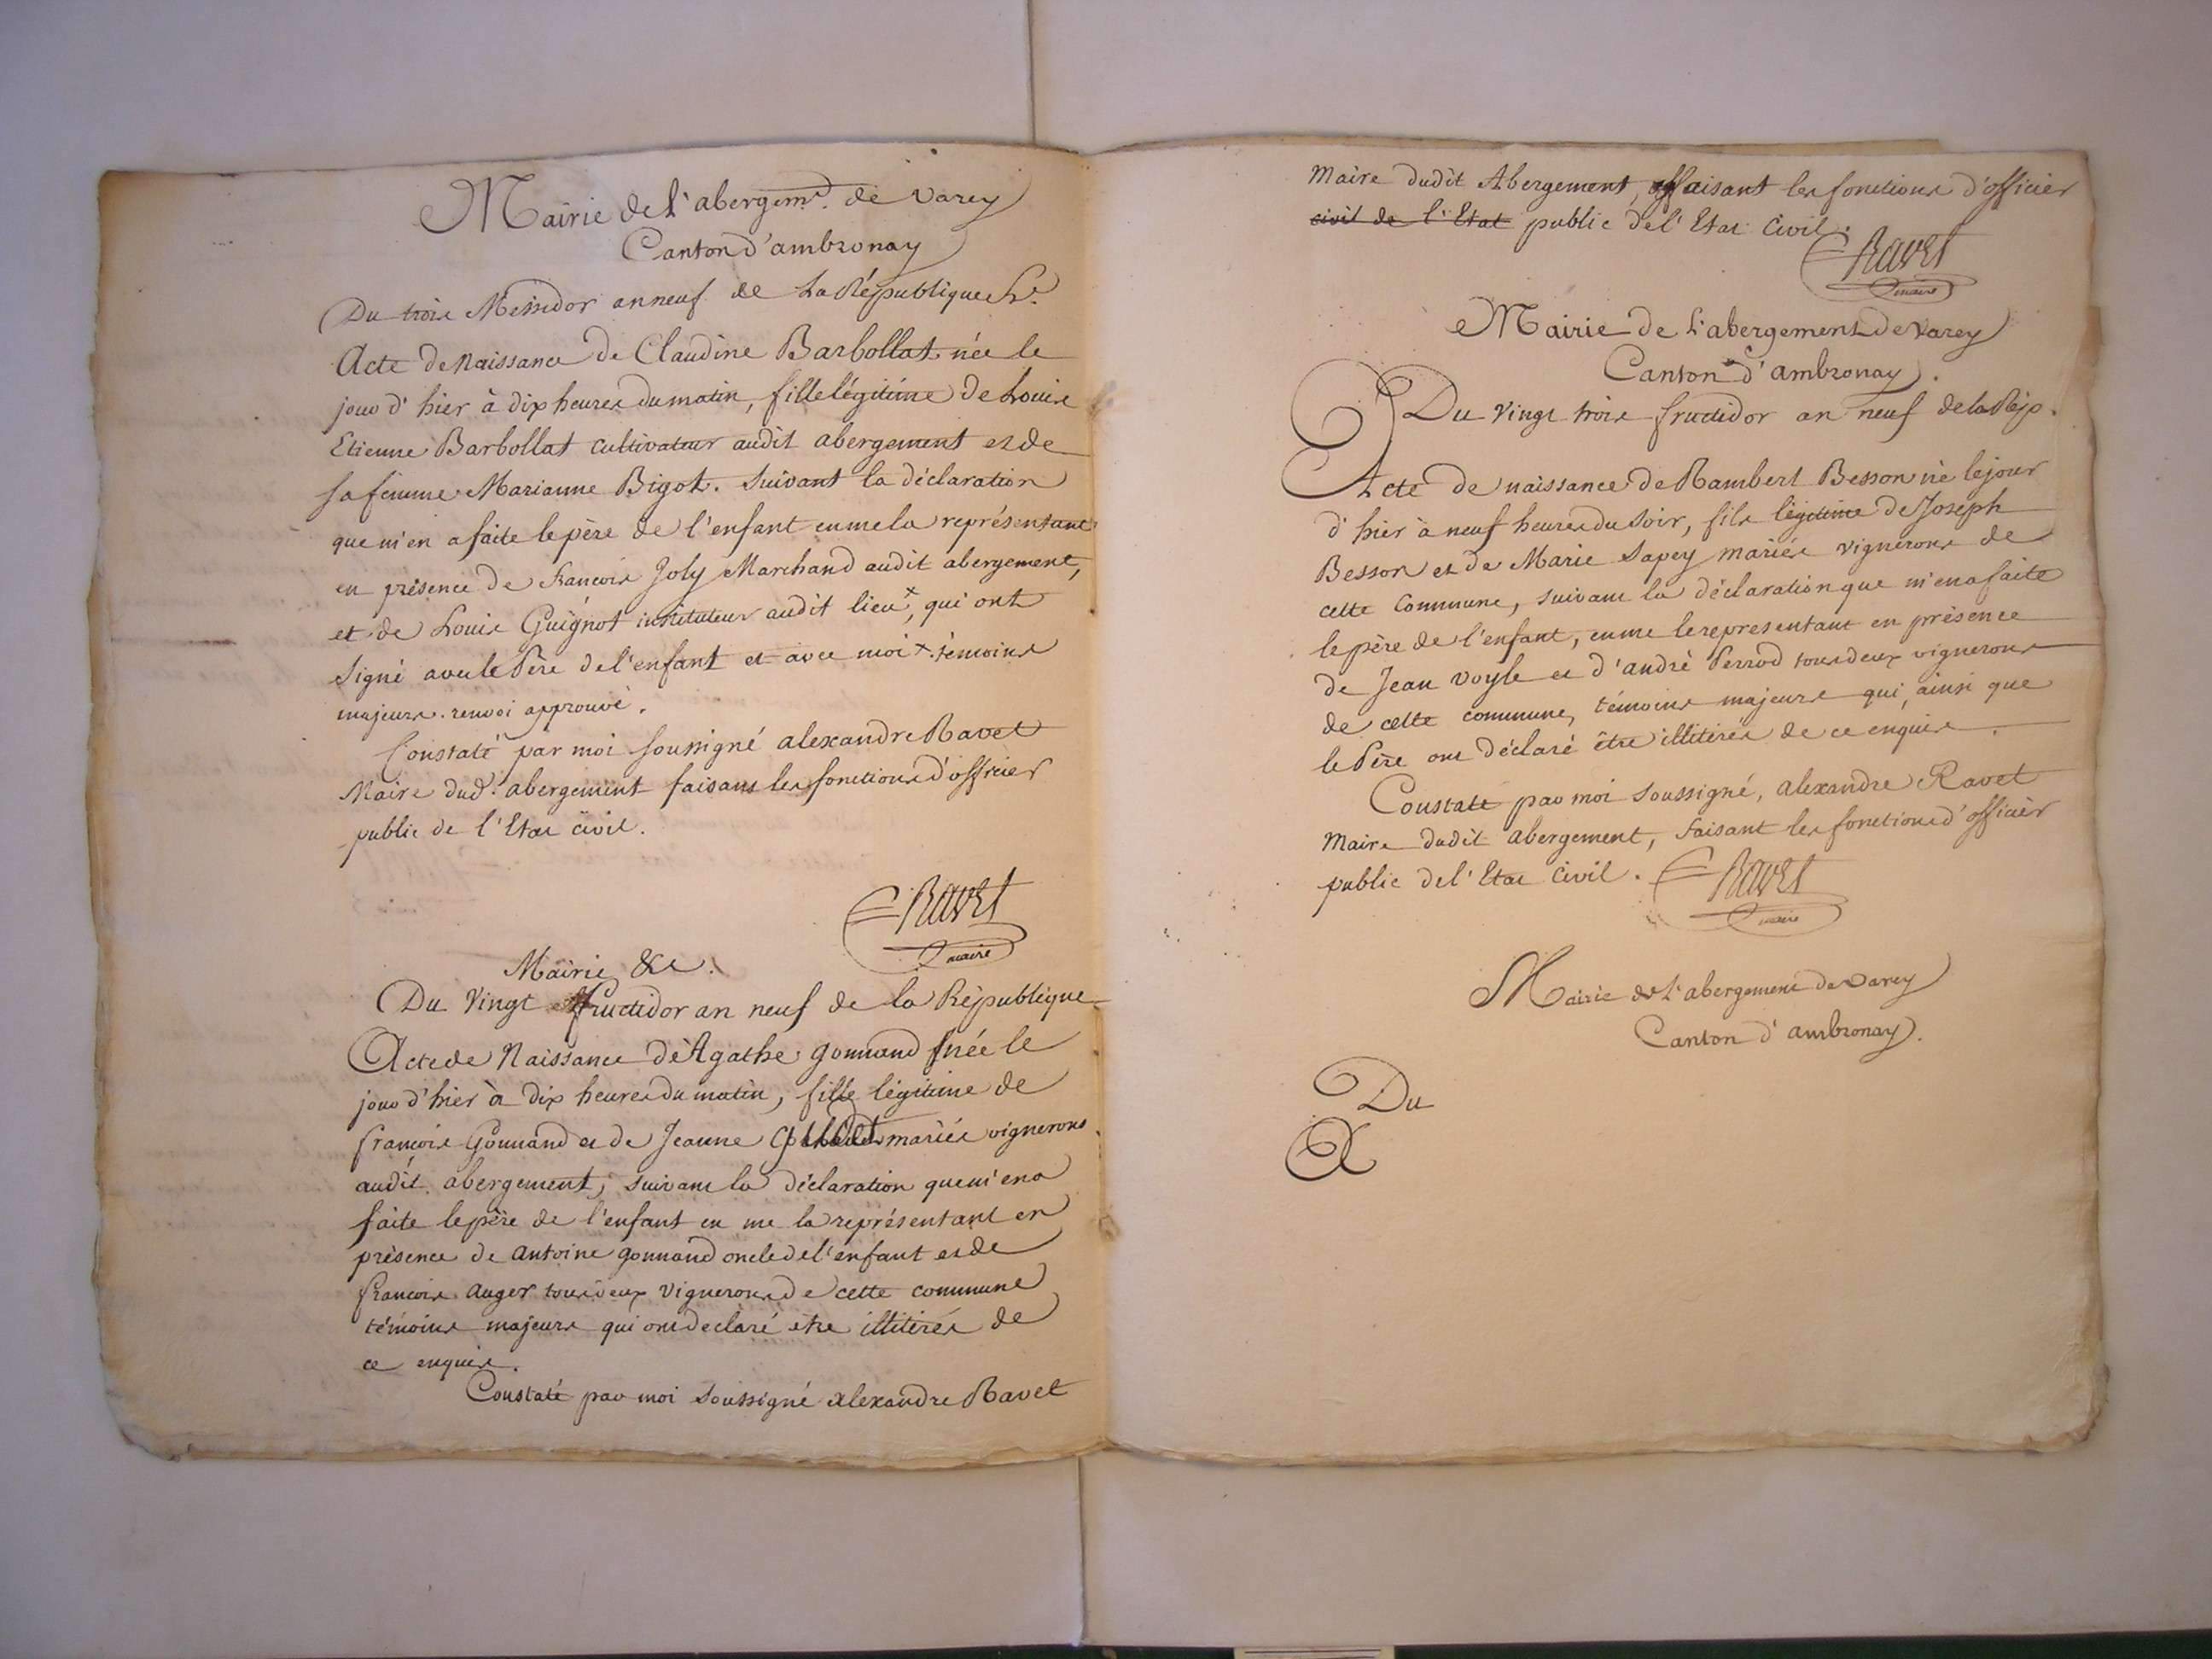 Mairie de l'abergemt. de Varey
Canton d'ambronay
Du trois Messidor an neuf de la République fse.
Acte de Naissance de Claudine Barbollat née le
jour d'hier à dix heures du matin, fille légitime de Louis
Etienne Barbollat cultivateur audit abergement et de
sa femme Marianne Bigot. suivant la déclaration
que m'en a faite le père de l'enfant en me la représentant
en présence de francois Joly Marchand audit abergement,
et de Louis Guignot instituteur audit lieu x, qui ont
signé avec le Père de l'enfant et avec moi x. témoins
majeurs. renvoi approuvé.
Constaté par moi soussigné alexandre Ravet
Maire dud. abergement faisant les fonctions d'officier
public de l'Etat civil.
Ravet
maire
Mairie &c.
Du Vingt fructidor an neuf de la République
Acte de Naissance d'Agathe Gonnand née le
jour d'hier à dix heures du matin, fille légitime de
francois Gonnand et de Jeanne mariés vignerons
audit abergement, suivant la déclaration que m'en a
faite le père de l'enfant en me la représentant en
présence de antoine gonnand oncle de l'enfant et de
francois Auger tous deux vignerons de cette commune
témoins majeurs qui ont declaré être illitérés de
ce enquis.
Constaté par moi soussigné alexandre Ravet
Maire dudit Abergement, faisant les fonctions d'officier
civil de l'Etat public de l'Etat Civil.
Ravet
maire
Mairie de l'abergement de Varey
Canton d'ambronay.
Du vingt trois fructidor an neuf de la Rép.
Acte de naissance de Rambert Besson né le jour
d'hier à neuf heures du soir, fils légitime de Joseph
Besson et de Marie Sapey mariés vignerons de
cette Commune, suivant la déclaration que m'en a faite
le père de l'enfant, en me le representant en présence
de Jean Voyle et d'andré Perrod tous deux vignerons
de cette commune, témoins majeurs qui, ainsi que
le Père ont déclaré être illitérés de ce enquis.
Constaté par moi soussigné, alexandre Ravet
Maire dudit abergement, faisant les fonctions d'officier
public de l'Etat Civil.
Ravet
maire
Mairie de l'abergement de Varey
Canton d'ambronay.
Du
A